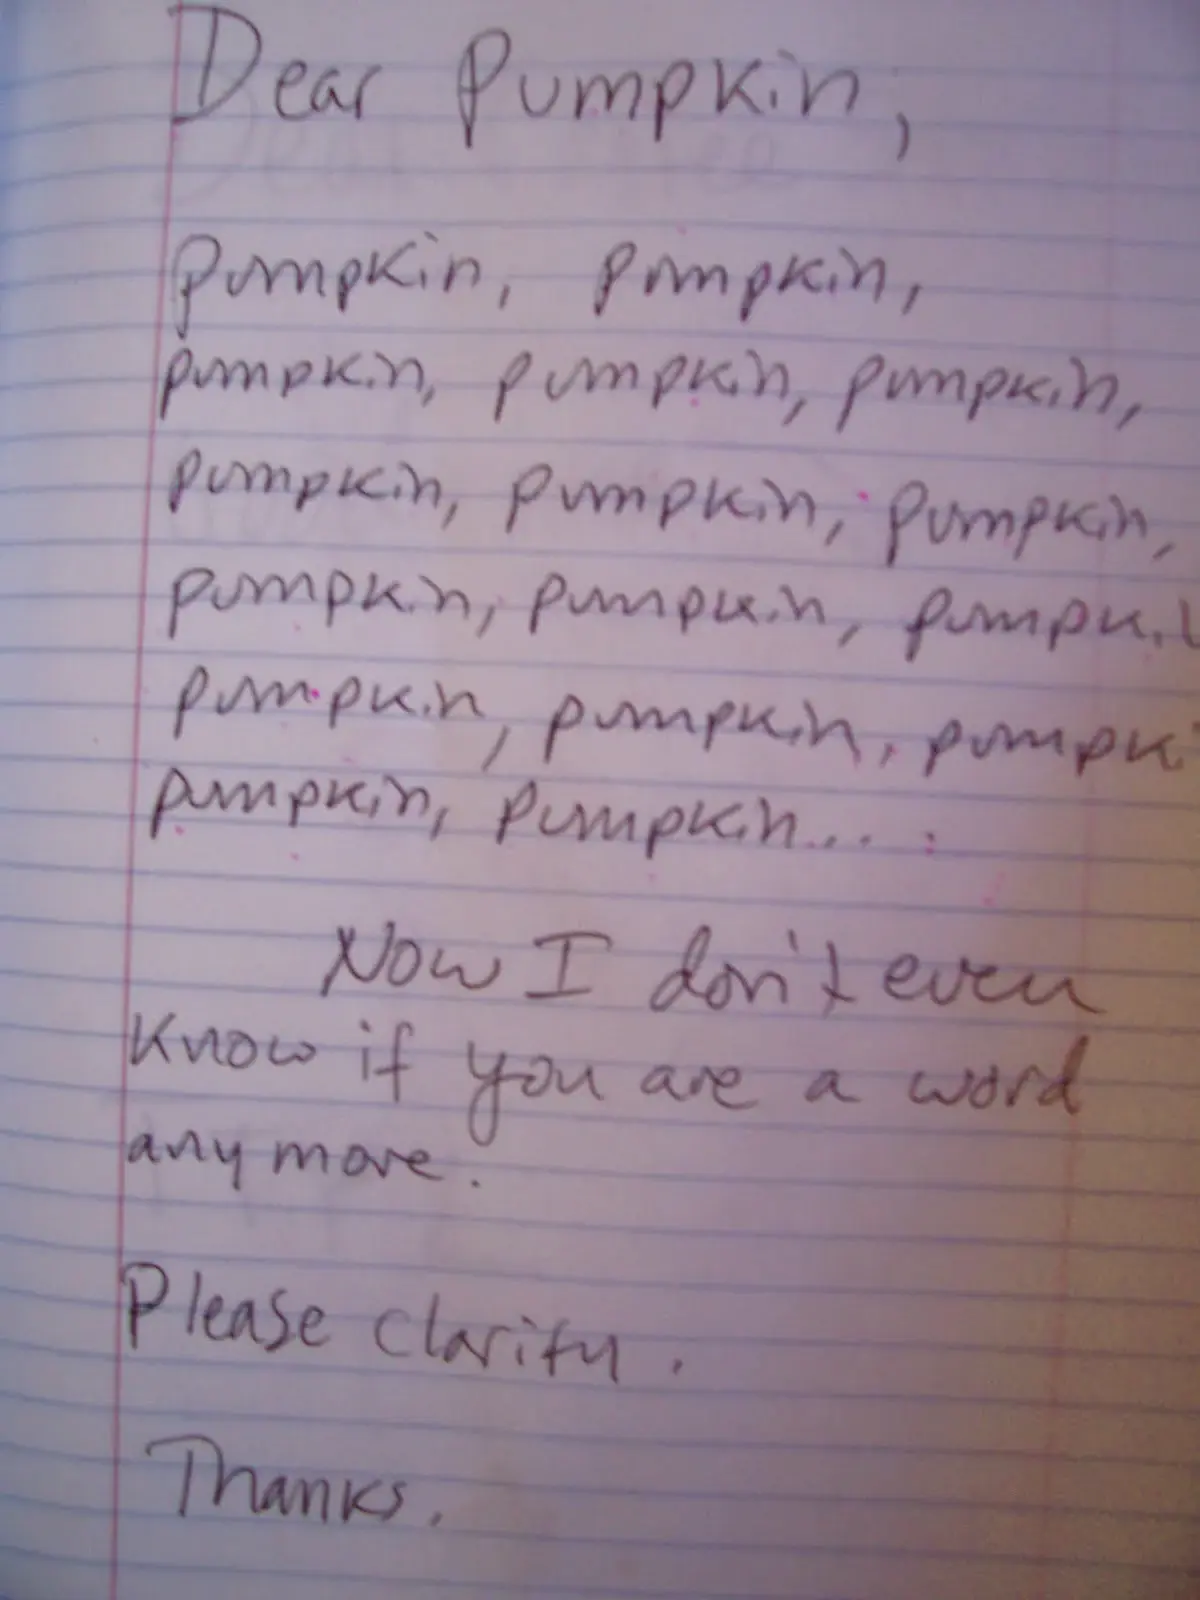 Dear Pumpkin,
pumpkin, pumpkin,
pumpkin, pumpkin, pumpkin,
pumpkin, pumpkin, pumpkin,
pumpkin, pumpkin, pumpki
pumpkin, pumpkin, pumpk
pumpkin, pumpkin....
Now I don't even
know if you are a word
anymore.
Please clarify.
Thanks.